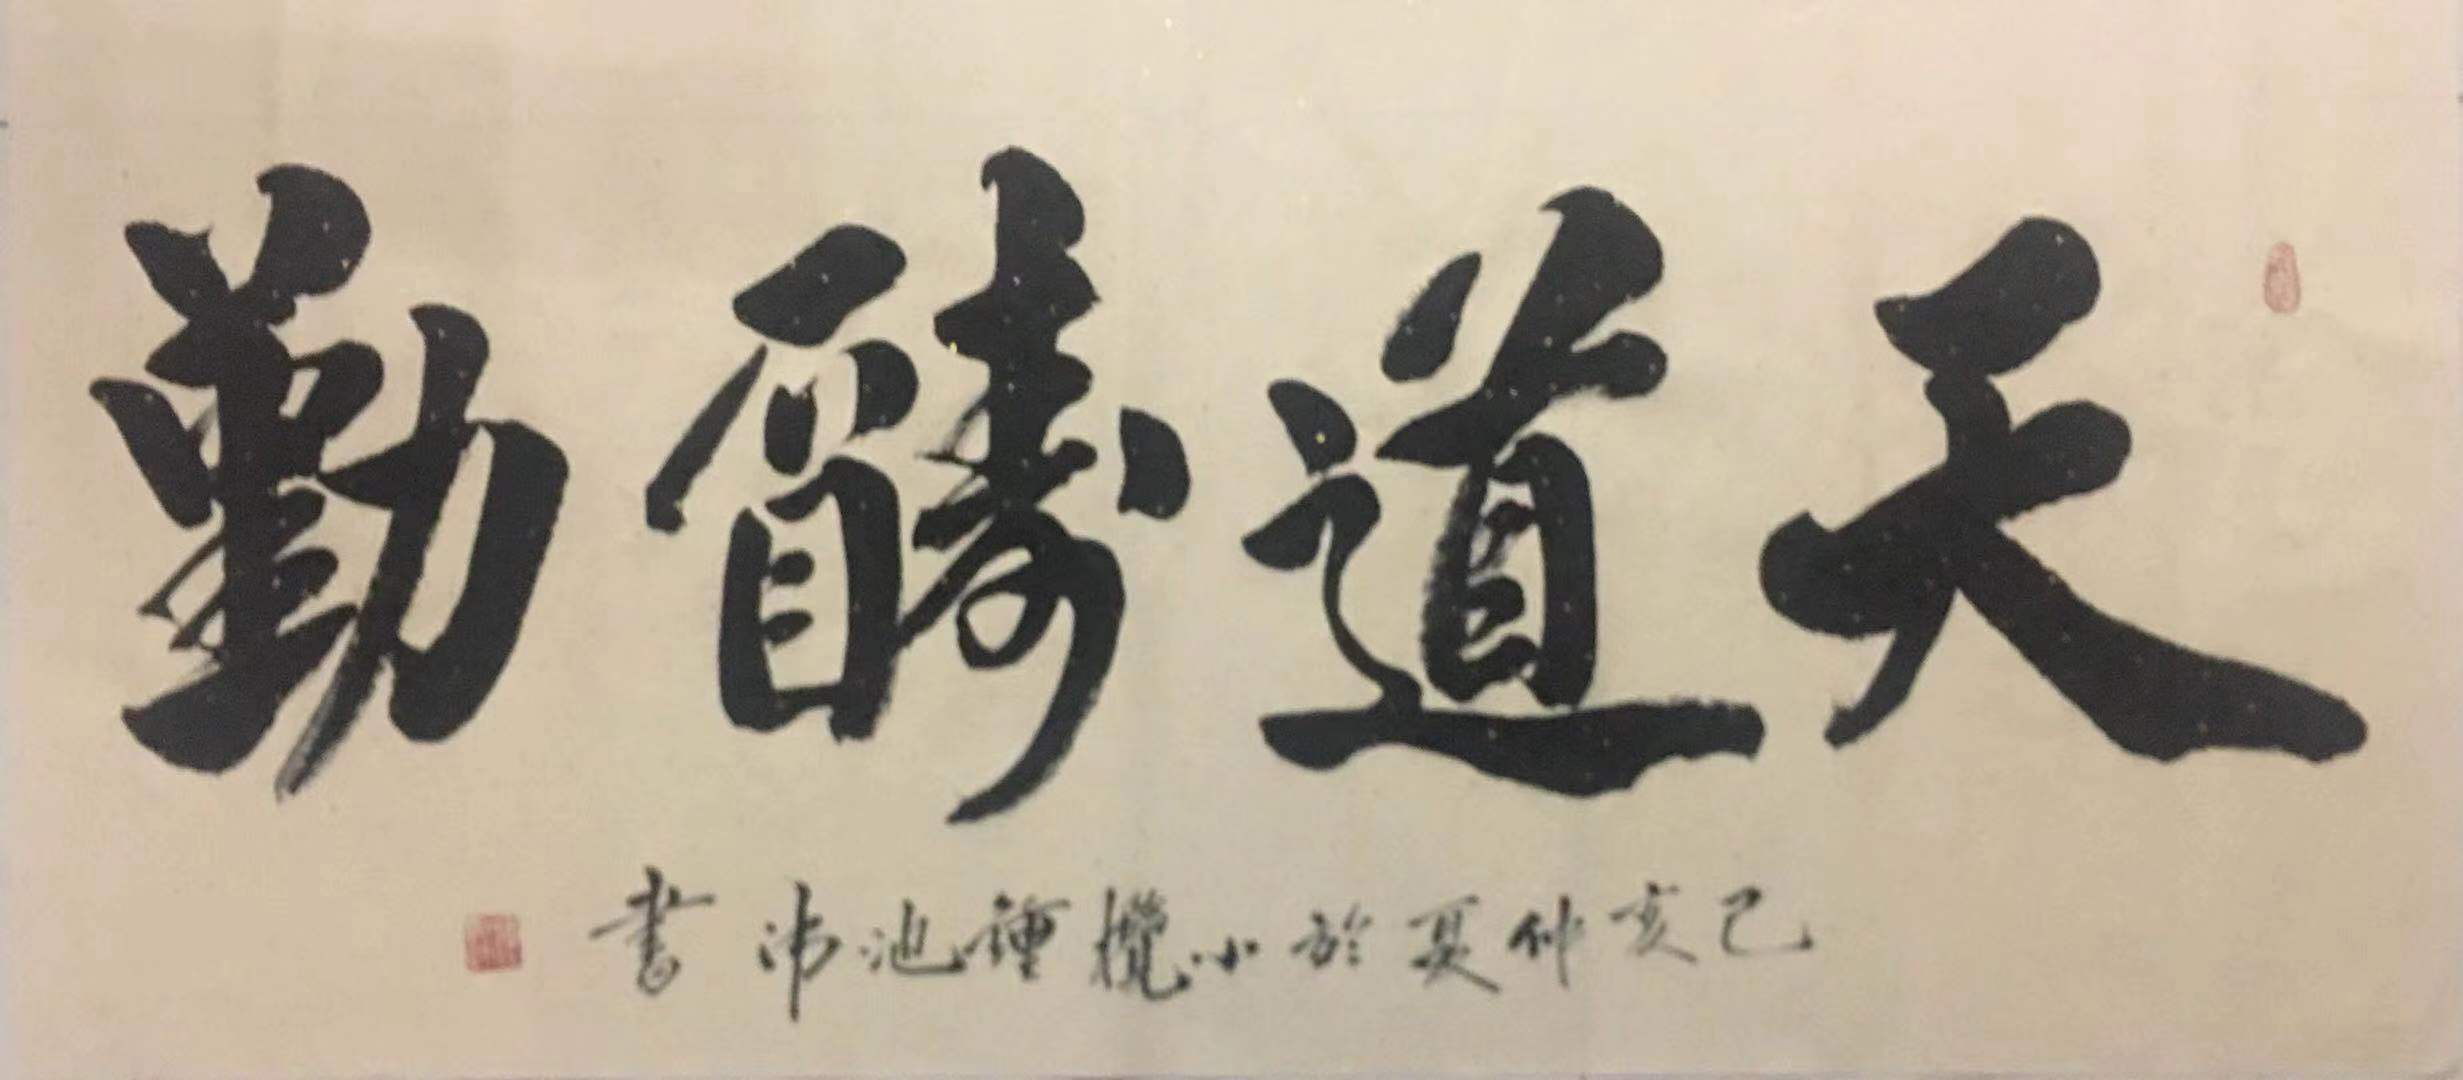 天道酬勤
己亥仲夏於小欖鍾池沛書